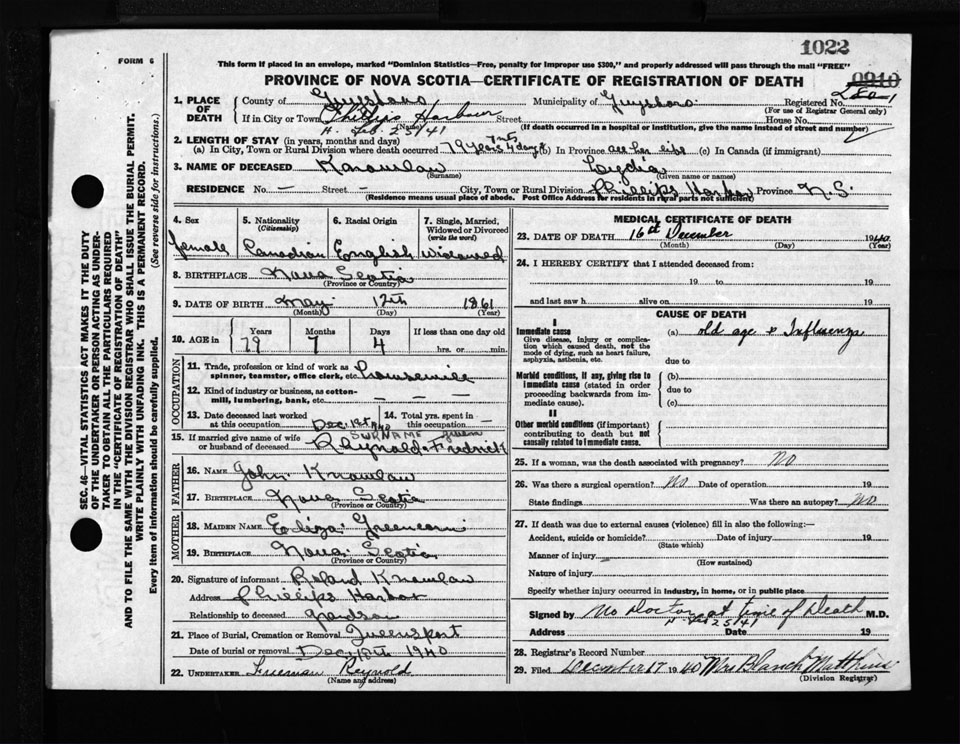 1022
FORM 6
This form if placed in an envelope, marked "Dominion Statistics—Free, penalty for improper use $300," and properly addressed will pass through the mail "FREE"
PROVINCE OF NOVA SCOTIA—CERTIFICATE OF REGISTRATION OF DEATH
0910
1. PLACE OF DEATH
County of Guysboro Municipality of Guysboro Registered No.
(For use of Registrar General only)
If in City or Town Phillips Harbour Street House No.
(Name)
(If death occurred in a hospital or institution, give the name instead of street and number)
H. Feb. 25/41
2. LENGTH OF STAY (in years, months and days)
(a) In City, Town or Rural Division where death occurred 79 years 7 mts 4 days (b) In Province all her life (c) In Canada (if immigrant)
3. NAME OF DECEASED Knowlaw Lydia
(Surname) (Given name or names)
RESIDENCE No. — Street — City, Town or Rural Division Phillips Harbor Province N.S.
(Residence means usual place of abode. Post Office Address for residents in rural parts not sufficient)
4. Sex 5. Nationality 6. Racial Origin 7. Single, Married, Widowed or Divorced
(Citizenship) (write the word)
female Canadian English Widowed
8. BIRTHPLACE Nova Scotia
(Province or Country)
9. DATE OF BIRTH May 12th 1861
(Month) (Day) (Year)
10. AGE in Years Months Days If less than one day old
79 7 4 hrs. or min.
OCCUPATION
11. Trade, profession or kind of work as spinner, teamster, office clerk, etc. housewife
12. Kind of industry or business, as cotton-mill, lumbering, bank, etc. — — —
13. Date deceased last worked at this occupation Dec. 1st 1940 14. Total yrs. spent in this occupation —
15. If married give name of wife or husband of deceased Reynolds Fredrick
SURNAME given
FATHER
16. NAME John Knowlaw
17. BIRTHPLACE Nova Scotia
(Province or Country)
MOTHER
18. MAIDEN NAME Eliza
19. BIRTHPLACE Nova Scotia
(Province or Country)
20. Signature of informant Roland Knowlaw
Address Phillips Harbor
Relationship to deceased grandson
21. Place of Burial, Cremation or Removal Queensport
Date of burial or removal Dec. 18th 1940
22. UNDERTAKER Freeman Reynold
(Name and address)
MEDICAL CERTIFICATE OF DEATH
23. DATE OF DEATH 16th December 1940
(Month) (Day) (Year)
24. I HEREBY CERTIFY that I attended deceased from:
19 to 19
and last saw h alive on 19
CAUSE OF DEATH
I
Immediate cause
Give disease, injury or complication which caused death, not the mode of dying, such as heart failure, asphyxia, asthenia, etc.
(a) old age & Influenza
due to
Morbid conditions, if any, giving rise to immediate cause (stated in order proceeding backwards from immediate cause).
(b)
due to
(c)
II
Other morbid conditions (if important) contributing to death but not causally related to immediate cause.
25. If a woman, was the death associated with pregnancy? No
26. Was there a surgical operation? No Date of operation 19
State findings Was there an autopsy? No
27. If death was due to external causes (violence) fill in also the following:—
Accident, suicide or homicide? Date of injury 19
(State which)
Manner of injury
(How sustained)
Nature of injury
Specify whether injury occurred in industry, in home, or in public place
Signed by No Doctor at time of Death M.D.
H Feb 25/41
Address Date 19
28. Registrar's Record Number
29. Filed December 17 1940 Mrs Blanch Matthews
(Division Registrar)
SEC. 46—VITAL STATISTICS ACT MAKES IT THE DUTY
OF THE UNDERTAKER OR PERSON ACTING AS UNDER-
TAKER TO OBTAIN ALL THE PARTICULARS REQUIRED
IN THE "CERTIFICATE OF REGISTRATION OF DEATH"
AND TO FILE THE SAME WITH THE DIVISION REGISTRAR WHO SHALL ISSUE THE BURIAL PERMIT.
WRITE PLAINLY WITH UNFADING INK. THIS IS A PERMANENT RECORD.
Every item of information should be carefully supplied. (See reverse side for instructions.)